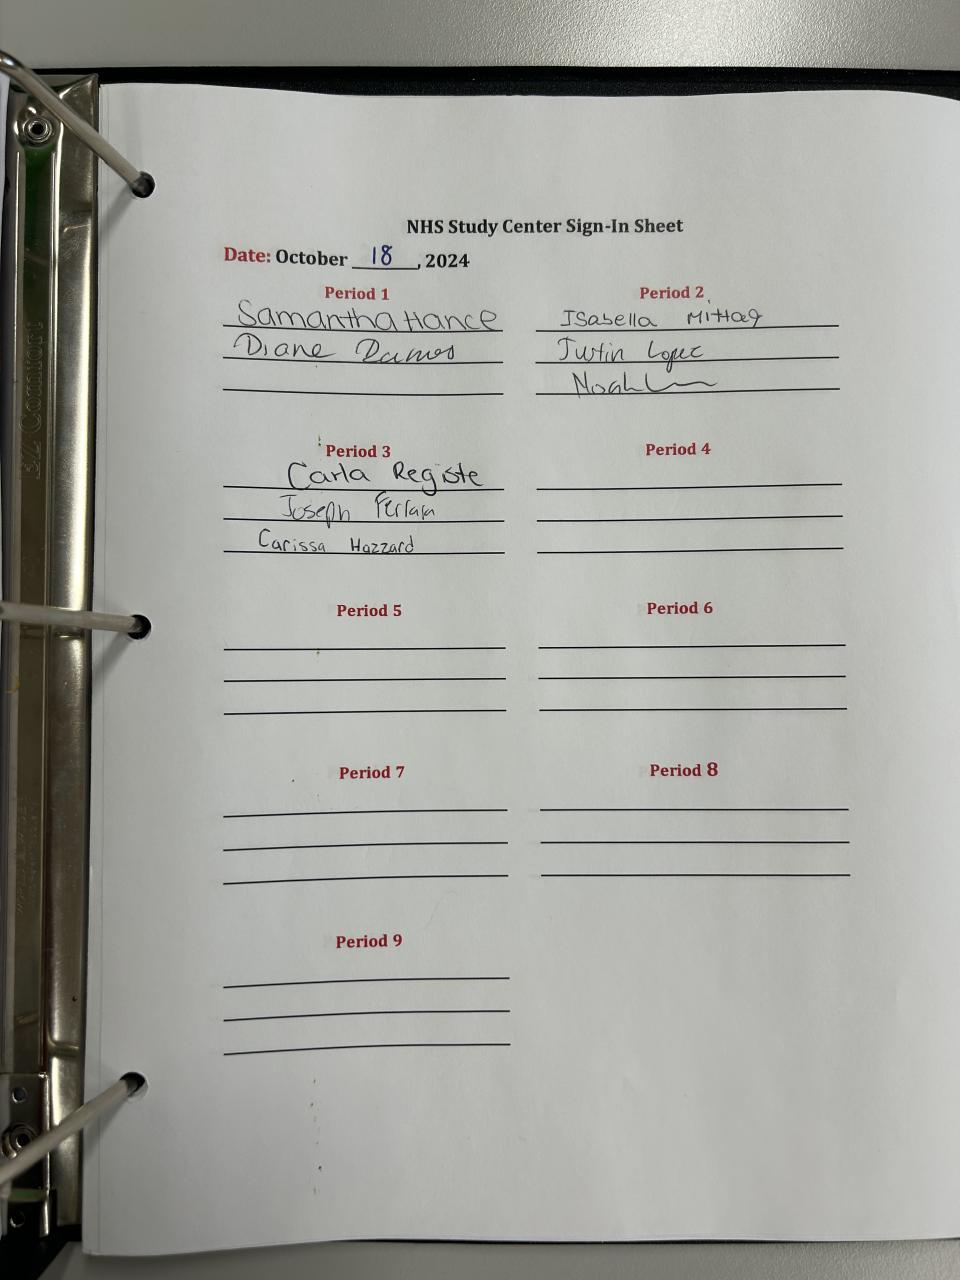 NHS Study Center Sign-In Sheet
Date: October 18, 2024
Period 1
Samantha Hance
Diane Dumos
Period 2
Isabella Mittag
Justin Lopez
Noah
Period 3
Carla Registe
Joseph Ferrara
Carissa Hazzard
Period 4
Period 5
Period 6
Period 7
Period 8
Period 9